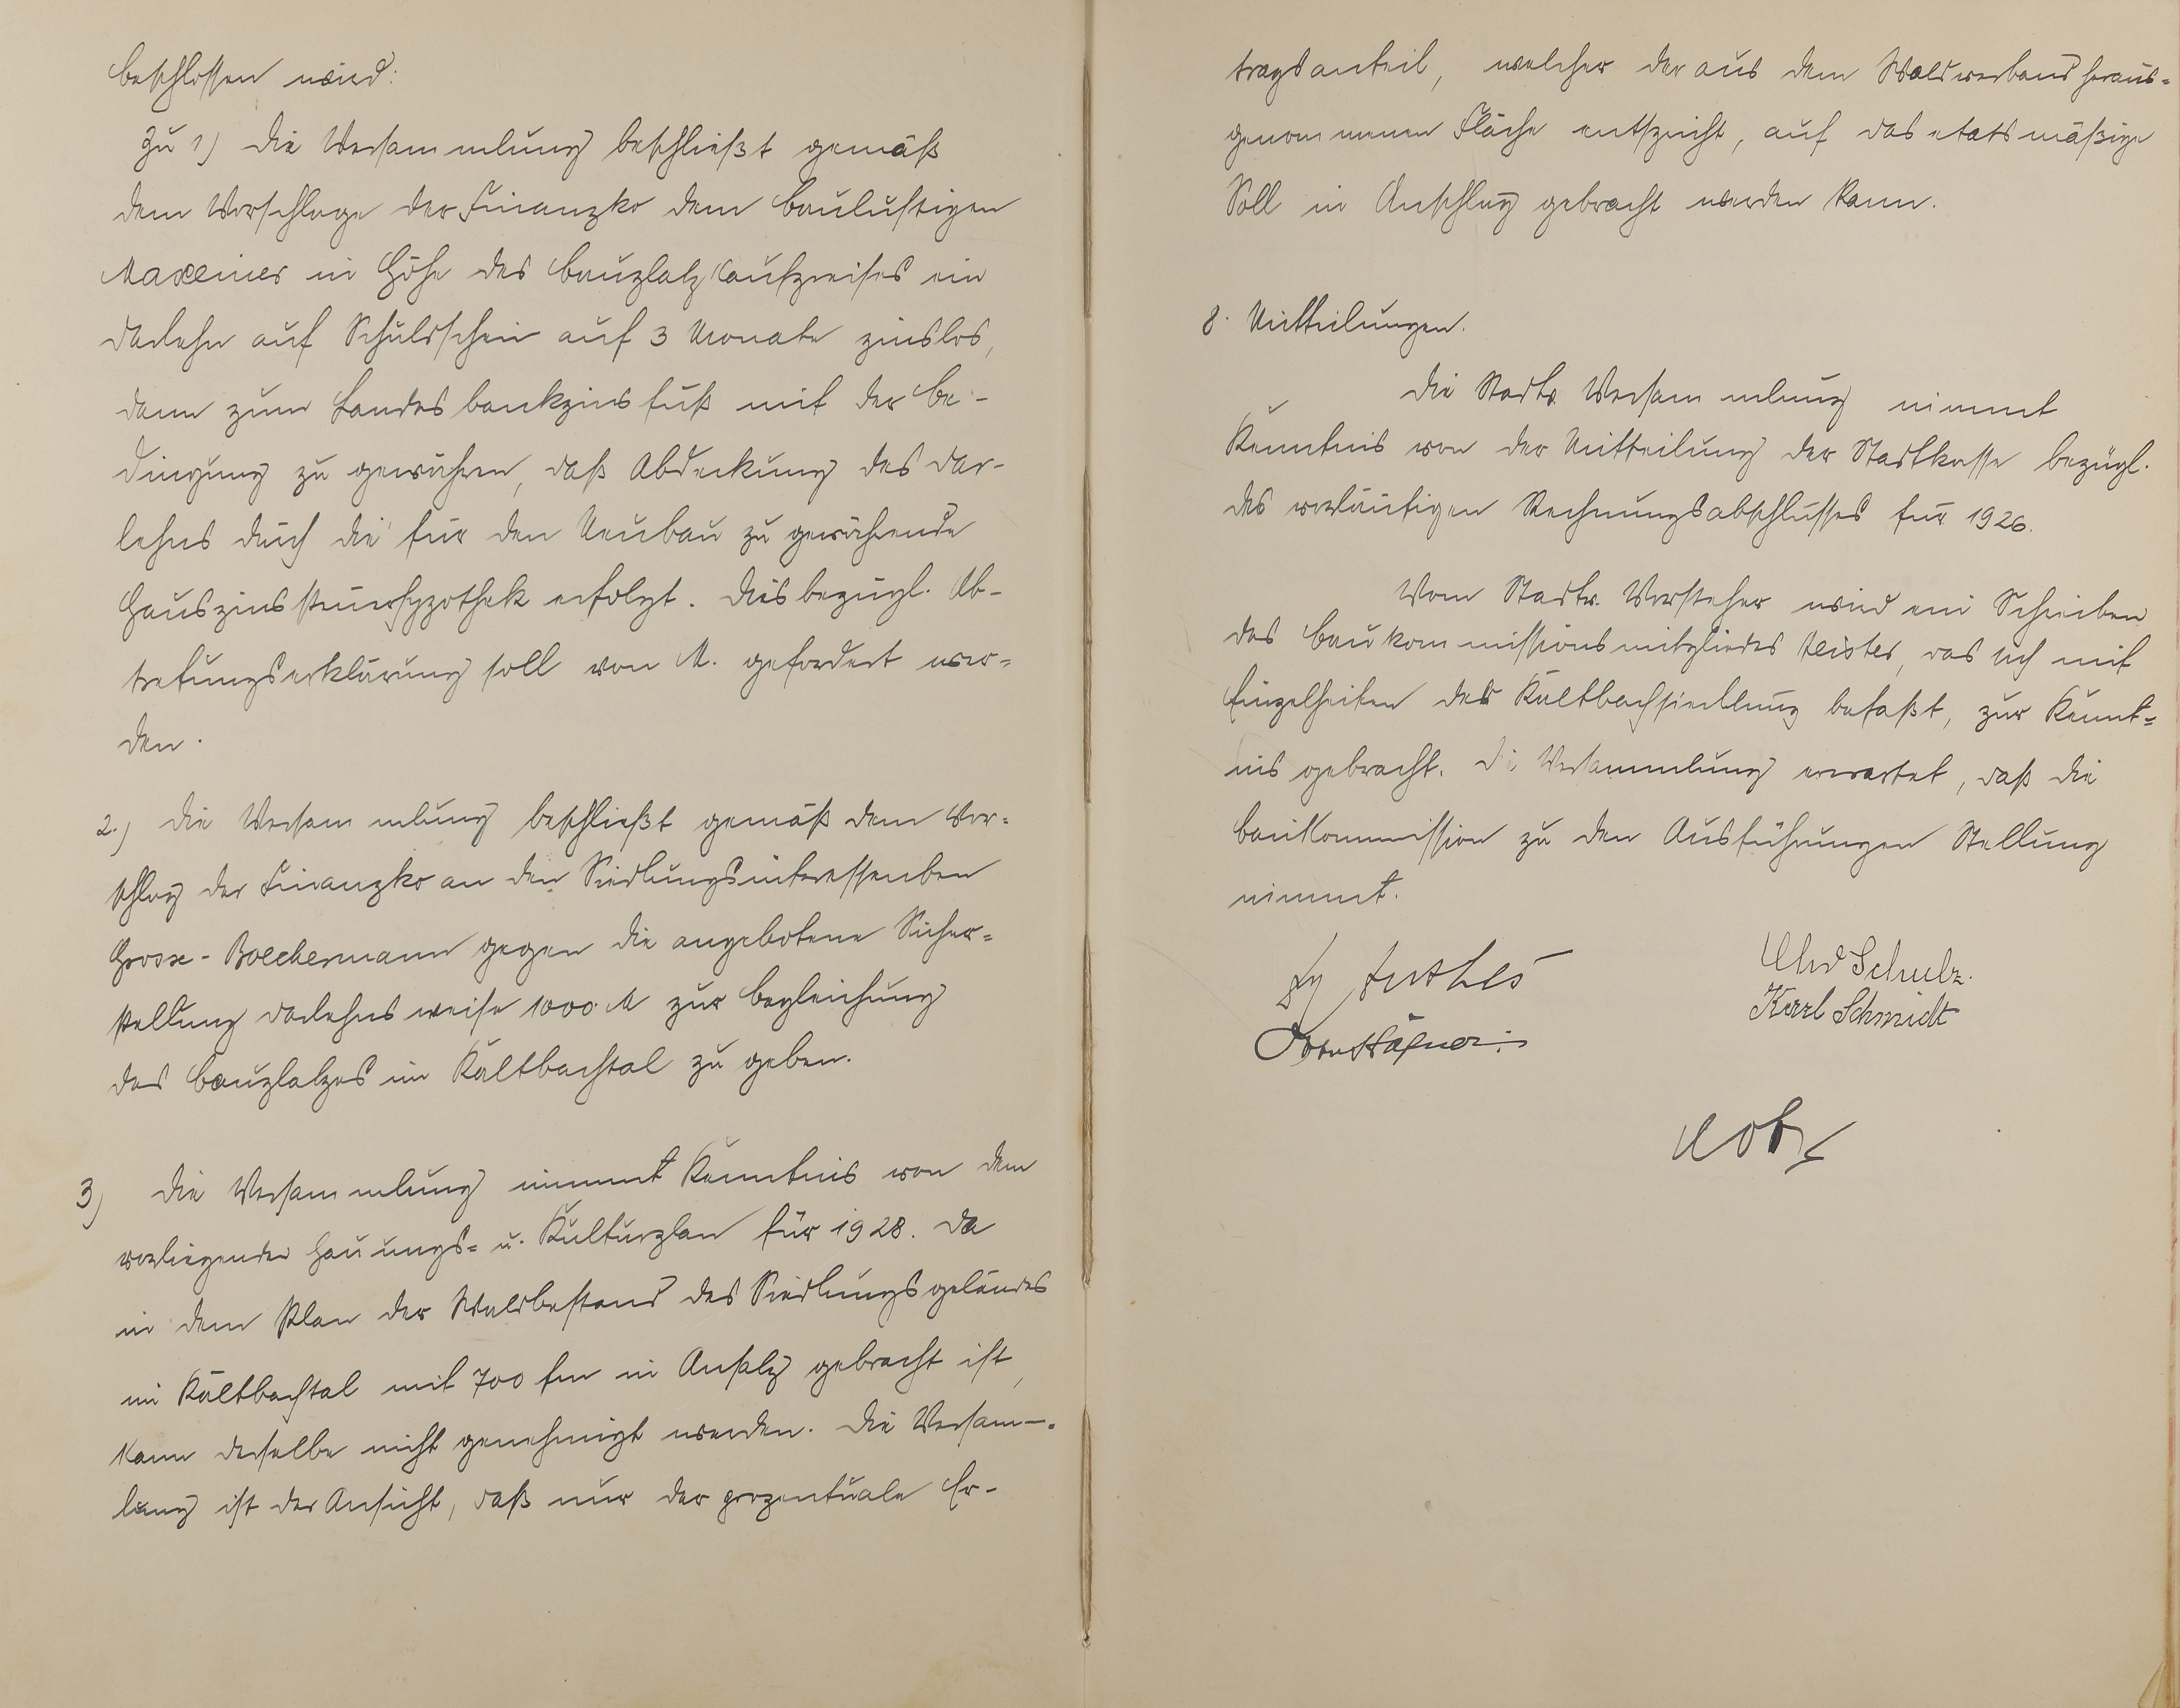 beschlossen wird:
Zu 1) Die Versammlung beschließt gemäß
dem Vorschlage der Finanzko dem Baulustigen
Maxeiner in Höhe des Bauplatzkaufpreises ein
Darlehn auf Schuldschein auf 3 Monate zinslos,
dann zum Landesbankzinsfuß mit der Be-
dingung zu gewähren, daß Abdeckung des Dar-
lehns durch die für den Neubau zu gewährende
Hauszinssteuerhypothek erfolgt. Diesbezügl. Ab-
tretungserklärung soll von M. gefordert wer=
den.
2.) Die Versammlung beschließt gemäß dem Vor=
schlag der Finanzko an den Siedlungsinteressenten
Grosse-Boeckermann gegen die angebotene Sicher=
stellung darlehnsweise 1000 M zur Begleichung
des Bauplatzes im Kaltbachtal zu geben.
3) Die Versammlung nimmt Kenntnis von dem
vorliegenden Hauungs= u. Kulturplan für 1928. Da
in dem Plan der Waldbestand des Siedlungsgeländes
im Kaltbachtal mit 700 fm in Ansatz gebracht ist,
kann derselbe nicht genehmigt werden. Die Versamm=
lung ist der Ansicht, daß nur der prozentuale Er-
tragsanteil, welcher der aus dem Waldverband heraus=
genommenen Fläche entspricht, auf das etatsmäßige
Soll in Anschlag gebracht werden kann.
8. Mitteilungen.
Die Stadtv. Versammlung nimmt
Kenntnis von der Mitteilung der Stadtkasse bezügl.
des vorläufigen Rechnungsabschlusses für 1926.
Vom Stadtv. Vorsteher wird ein Schreiben
des Baukommissionsmitgliedes Meister, das sich mit
Einzelheiten der Kaltbachsiedlung befaßt, zur Kennt=
nis gebracht. Die Versammlung erwartet, daß die
Baukommission zu den Ausführungen Stellung
nimmt.
Schulz.
Karl Schmidt